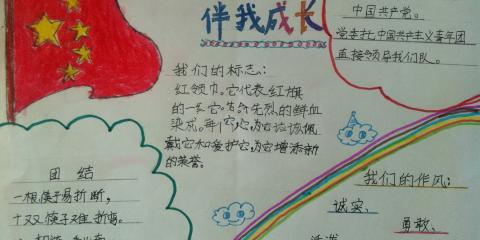 伴我成长
中国共产党。
党委托中国共产主义青年团
直接领导我们队。
我们的标志：
红领巾。它代表红旗
的一
先烈的鲜血
染成。每个
应该佩
戴它和爱护它,为它增添新
的荣誉。
团 结
一根筷子易折断,
十双筷子难折
我们的作风：
诚实、
勇敢、
活泼